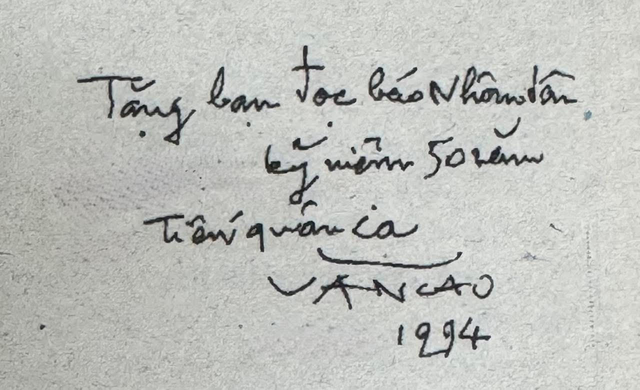 Tặng bạn đọc báo Nhân dân
kỷ niệm 50 năm
Tiến quân ca
VANCAO
1994